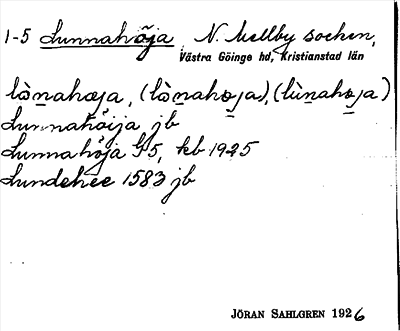 1-5 Lunnahöja N. Mellby socken,
Västra Göinge hd, Kristianstad län
lònahøja, (lònahøja), (lùnahøja)
Lunnahöija jb
Lunnahöja G5, kb 1925
Lundehee 1583 jb
JÖRAN SAHLGREN 1926